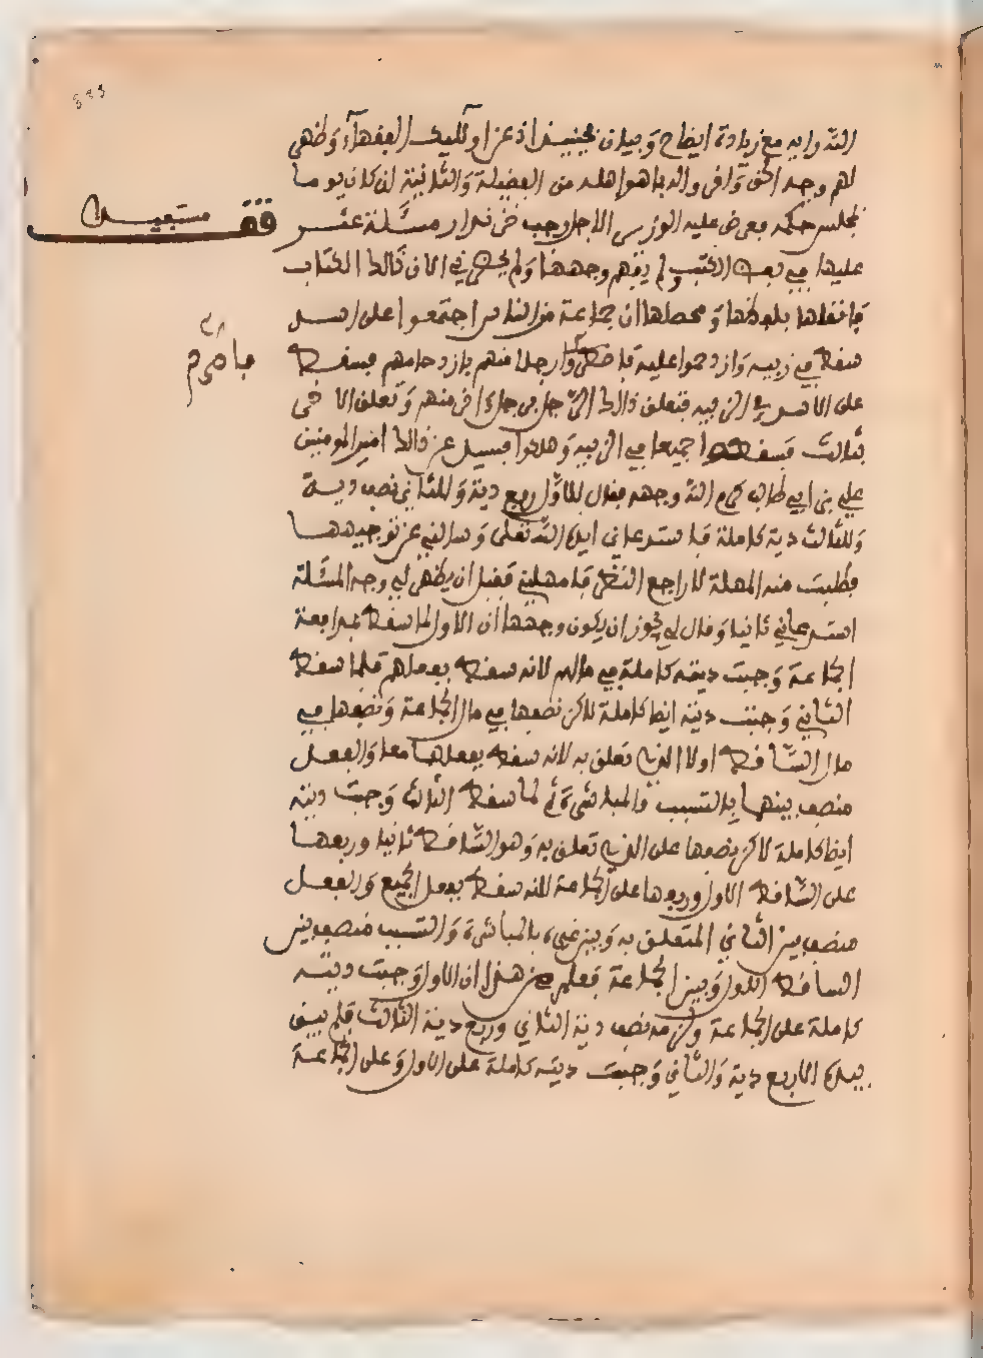 الله وايه مع زيادة ايضاح وبيان فحينئذ اذعن اولئك الفقهاء وظهر
لهم وجه الحق واقروا له بما هو اهله من الفضيلة والثانية ان كان يوما
بمجلس حكمه بعرض عليه الوزير الاجل رجب خزندار مسئلة عثر
عليها في بعض الكتب ولم يفهم وجهها ولم يحضرني الان ذالك الكتاب
فانقلها بلفظها ومحصلها ان جماعة من الناس اجتمعوا على اسد
سقط في زبية وازدحموا عليه فاضطروا رجلا منهم بازدحامهم فسقط
على الاسد الذي فيه فتعلق ذالك الرجل برجل اخر منهم وتعلق الاخر
بثالث فسقطوا جميعا في الزبية وهلكوا فسيل عن ذالك امير المومنين
علي بن ابي طالب كرم الله وجهه فقال للاول ربع دية وللثاني نصف دية
وللثالث دية كاملة فاستدعاني ايده الله تعلى وسالني عن توجيهها
فطلبت منه المهلة لاراجع النظر فامهلني فقبل ان يظهر لي وجه المسئلة
استدعاني ثانيا وقال لي يجوز ان يكون وجهها ان الاول لما سقط بمدافعة
الجماعة وجبت ديته كاملة في مالهم لانه سقط بفعلهم فلما سقط
الثاني وجبت ديته ايضا كاملة لاكن نصفها في مال الجماعة ونصفها في
مال الساقط اولا الذي تعلق به لانه سقط بفعلهما معا والفعل
منصف بينهما بالتسبب والمباشرة ثم لما سقط الثالث وجبت ديته
ايضا كاملة لاكن نصفها على الذي تعلق به وهو الساقط ثانيا وربعها
على الساقط الاول وربعها على الجماعة لانه سقط بفعل الجميع والفعل
منصف بين الثاني المتعلق به وبين غيره بالمباشرة والتسبب منصف بين
الساقط الاول وبين الجماعة فعلم من هذا ان الاول وجبت ديته
كاملة على الجماعة ولزمه نصف دية الثاني وربع دية الثالث فلم يبق
بيده الا ربع دية والثاني وجبت ديته كاملة على الاول وعلى الجماعة
قف
مستعيلا